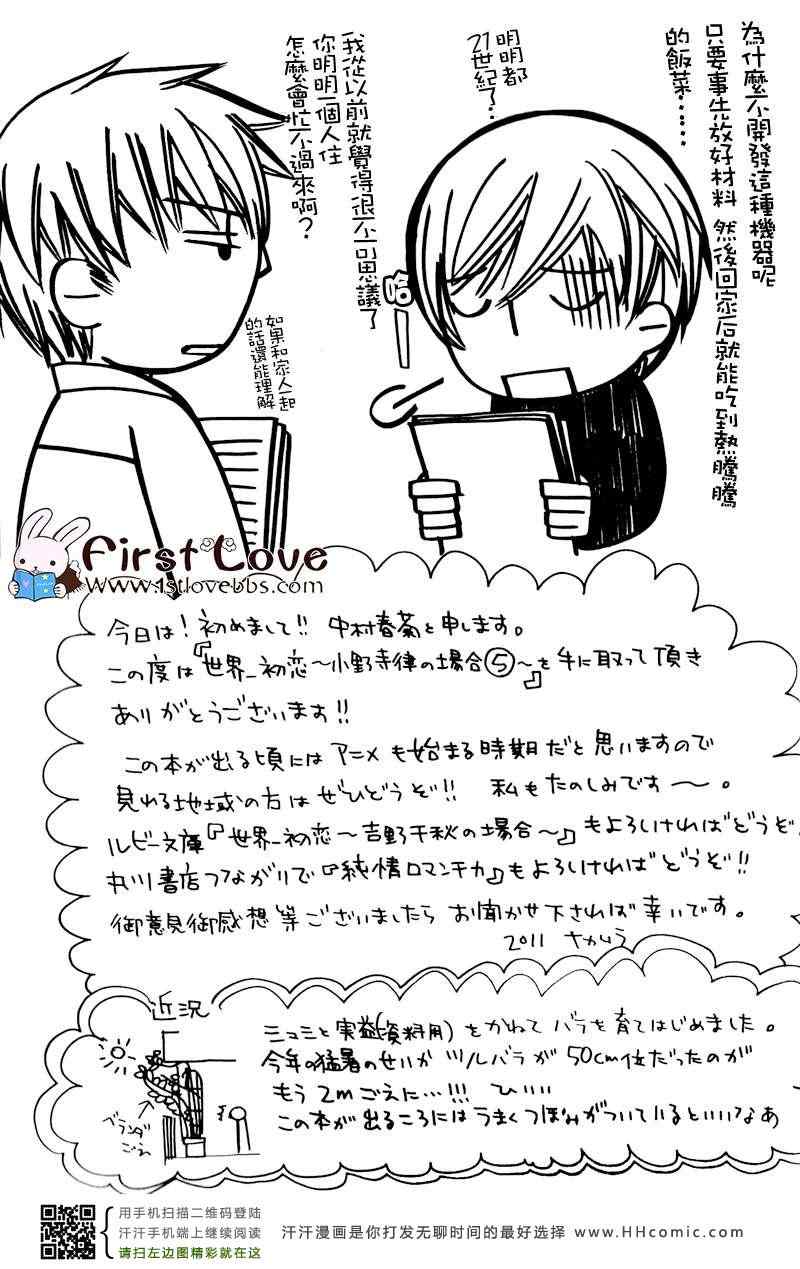 為什麼不開發這種機器呢
只要事先放好材料 然後回家后就能吃到熱騰騰
的飯菜……
明明都
21世紀了…
我從以前就覺得很不可思議了
你明明一個人住
怎麼會忙不過來啊?
哈
如果和家人一起
的話還能理解
First Love
www.1stlovebbs.com
今日は!初めまして!! 中村春菊と申します。
この度は『世界一初恋～小野寺律の場合⑤～』を手に取って頂き
ありがとうございます!!
この本が出る頃にはアニメも始まる時期だと思いますので
見れる地域の方はぜひどうぞ!! 私もたのしみです～。
ルビー文庫『世界一初恋～吉野千秋の場合～』もよろしければどうぞ
丸川書店つながりで『純情ロマンチカ』もよろしければどうぞ!!
御意見御感想等ございましたらお聞かせ下されば幸いです。
2011 なかむら
近況
シュミと実益(資料用)をかねてバラを育てはじめました。
今年の猛暑のせいかツルバラが50cm位だったのが
もう2mごえに…!!! ひいい
この本が出るころにはうまくつぼみがついているといいなあ
ベランダ
ごえ
用手机扫描二维码登陆
汗汗手机端上继续阅读
请扫左边图精彩就在这
汗汗漫画是你打发无聊时间的最好选择 www.HHcomic.com